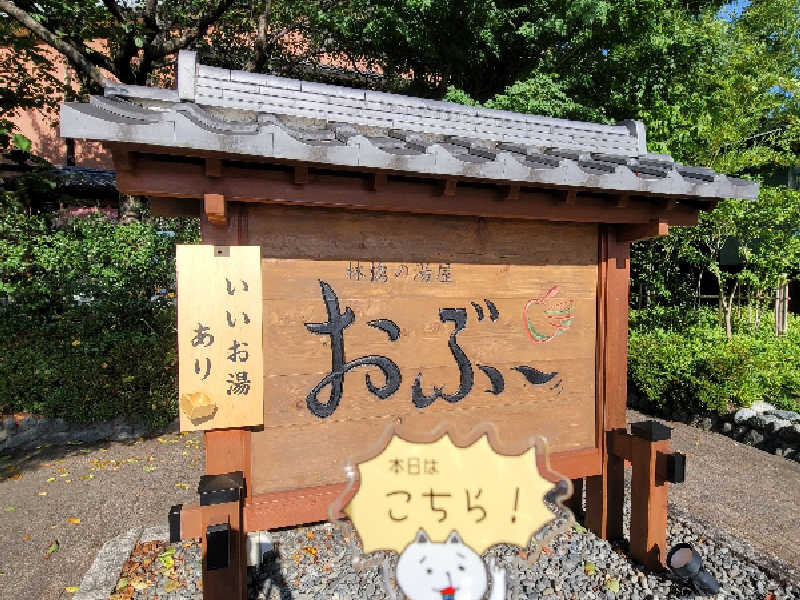 林檎の湯屋
おぶ～
いいお湯
あり
本日は
こちら！